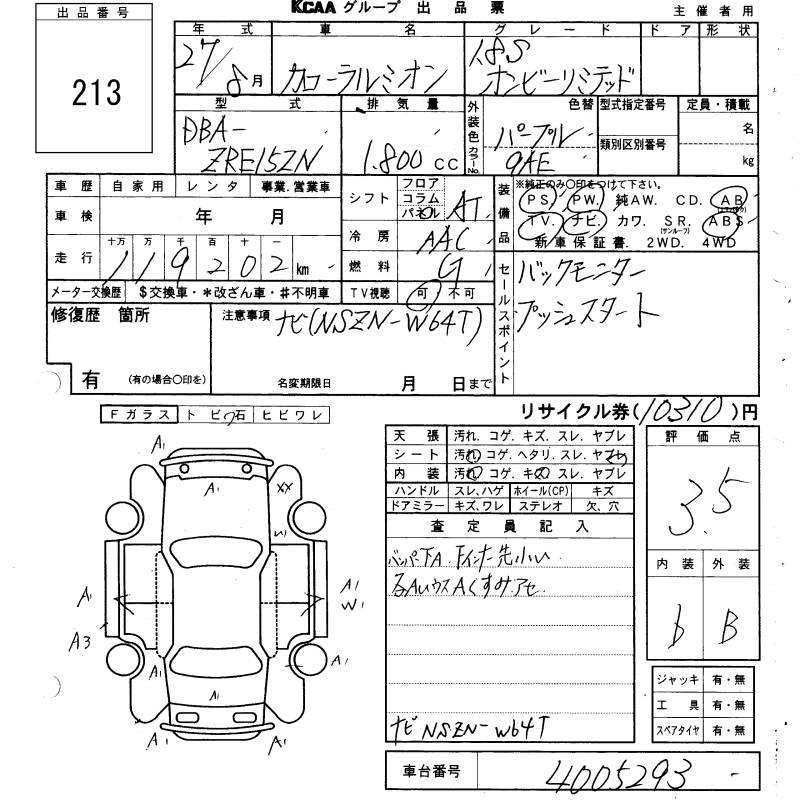 出品番号
213
KCAA グループ 出 品 票
主 催 者 用
年 式
車 名
グ レ ー ド
ド ア
形 状
27/8月
カローラルミオン
1.8S
オンビーリミテッド
型 式
排 気 量
外装色 カラーNo.
色替
型式指定番号
定員・積載
DBA-
ZRE152N
1.800 cc
パープル
9AE
類別区別番号
名
kg
車 歴 自 家 用 レ ン タ 事業.営業車
車 検 年 月
走 行 十万 万 千 百 十 一
119202 km
メーター交換歴 $交換車・*改ざん車・#不明車
シフト フロア コラム パネル AT
冷 房 AAC
燃 料 G
TV視聴 可 不可
装備品
※純正のみ〇印をつけて下さい。
PS. PW. 純AW. CD. AB
TV. ナビ. カワ. SR. ABS
(サンルーフ)
新車保証書. 2WD. 4WD
セールスポイント
バックモニター
プッシュスタート
修復歴 箇所
有 (有の場合〇印を)
注意事項 ナビ(NSZN-W64T)
名変期限日 月 日まで
リサイクル券(10310)円
Fガラス トビ石 ヒビワレ
天 張 汚れ. コゲ. キズ. スレ. ヤブレ
シート 汚れ. コゲ. ヘタリ. スレ. ヤブレ
内 装 汚れ. コゲ. キズ. スレ. ヤブレ
ハンドル スレ、ハゲ ホイール(CP) キズ
ドアミラー キズ、ワレ ステレオ 欠、穴
査 定 員 記 入
バンパー下A. Fインナー先小い
ナビ NSZN-W64T
評 価 点
3.5
内 装 外 装
b B
ジャッキ 有・無
工 具 有・無
スペアタイヤ 有・無
車台番号 4005293
A1
A1
XX
W1
A1
A3
A1
W1
A1
A1
A1
A1
A1